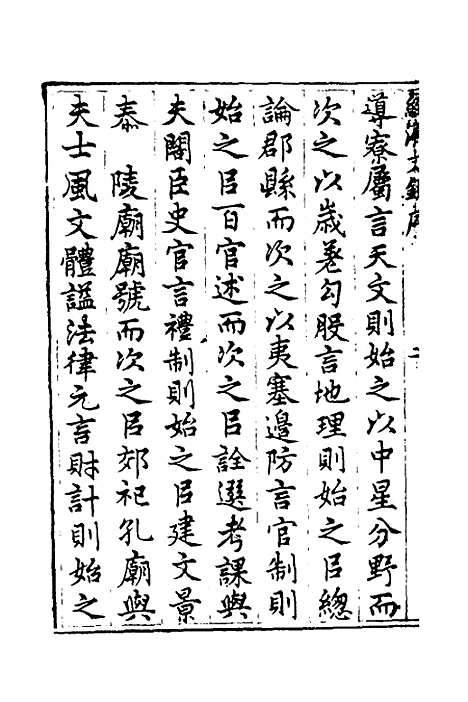 導寮屬言天文則始之以中星分野而
次之以歲差勾股言地理則始之㠯總
論郡縣而次之以夷塞邊防言官制則
始之㠯百官述而次之㠯詮選考課與
夫閣臣史官言禮制則始之㠯建文景
泰　陵廟廟號而次之㠯郊祀孔廟與
夫士風文體諡法律元言財計則始之